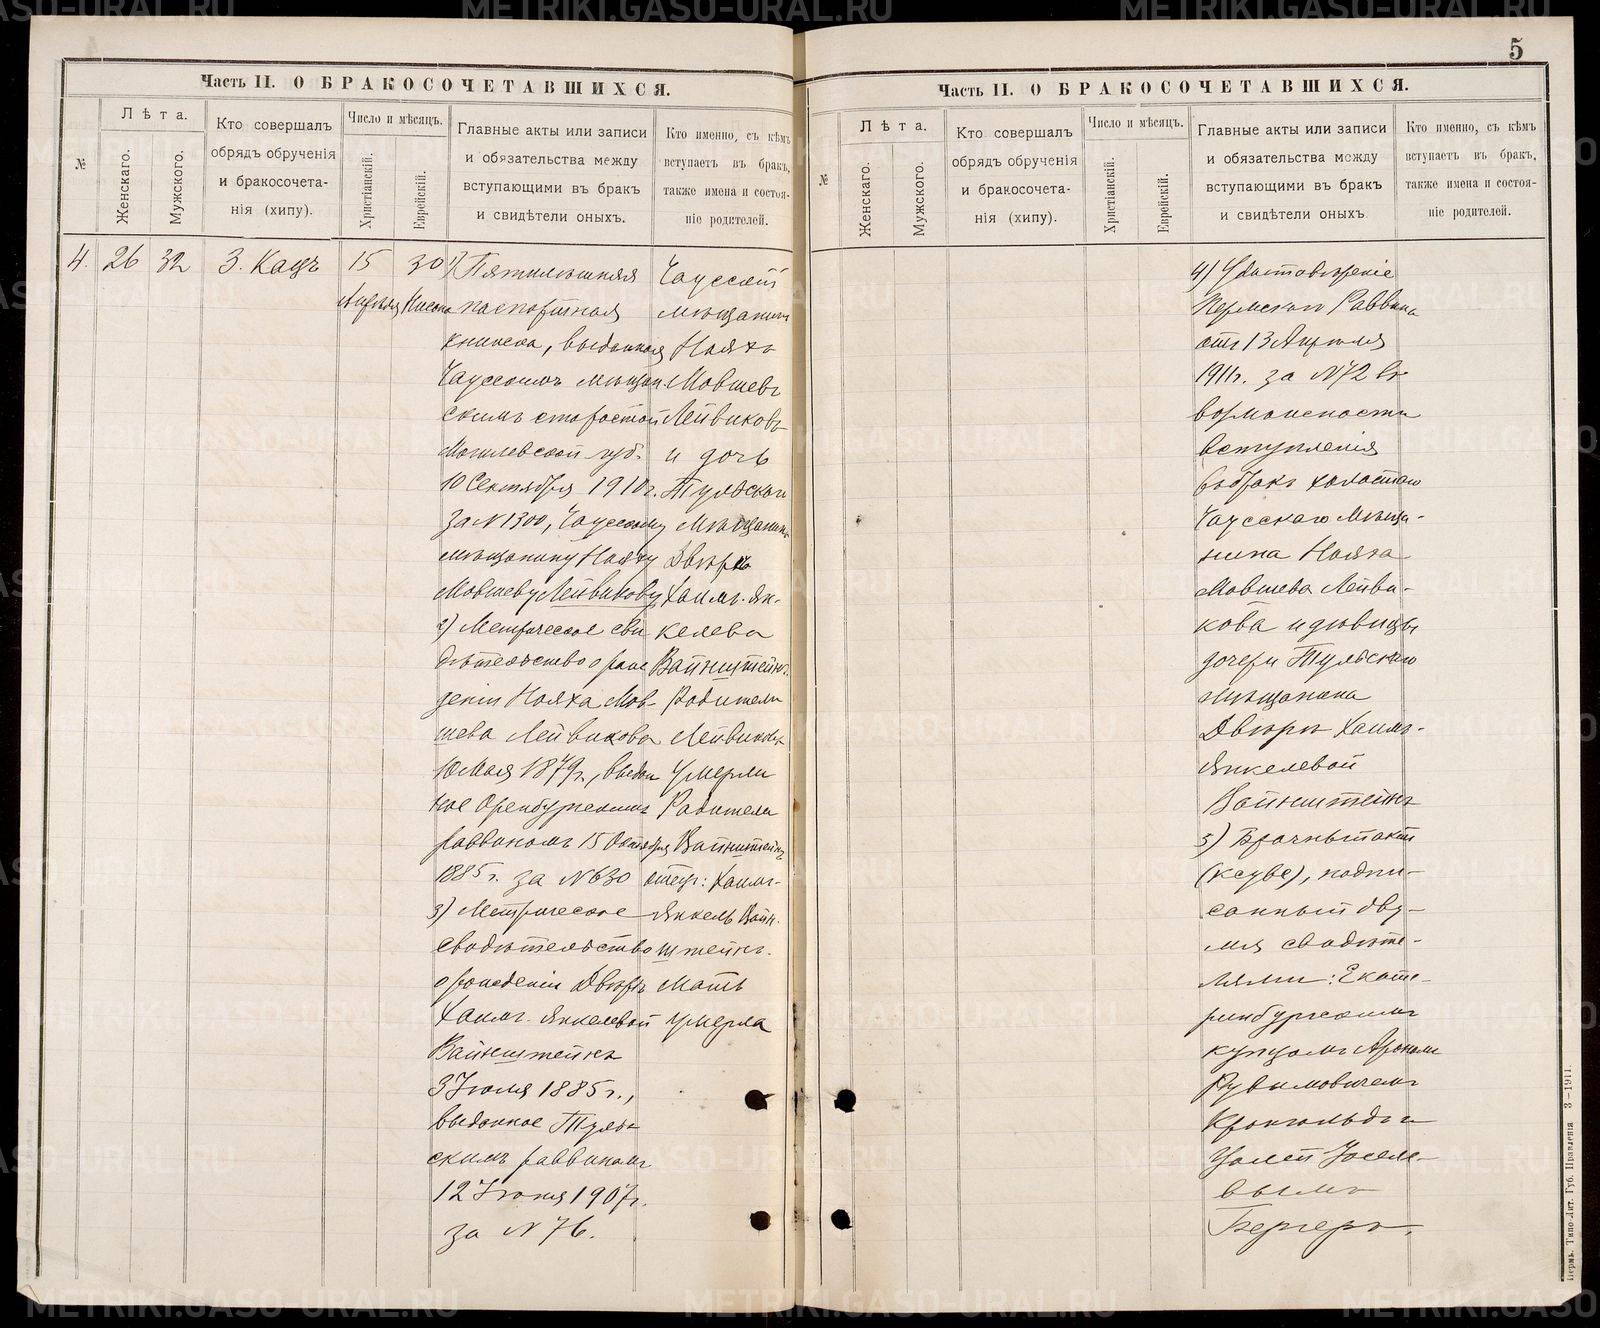 METRIKI.GASO-URAL.RU
5
Часть II. О БРАКОСОЧЕТАВШИХСЯ.
№
Лѣта.
Женскаго.
Мужского.
Кто совершалъ
обрядъ обрученія
и бракосочета-
нія (хипу).
Число и мѣсяцъ.
Христіанскій.
Еврейскій.
Главные акты или записи
и обязательства между
вступающими въ бракъ
и свидѣтели оныхъ.
Кто именно, съ кѣмъ
вступаетъ въ бракъ,
также имена и состоя-
ніе родителей.
4.
26
32
З. Кацъ
15
Апрѣля
30
Нисона
1) Пятилѣтняя
паспортная
книжка, выданная
Чаусскимъ мѣщан
скимъ старостой
Могилевской губ.
10 Сентября 1910 г.
за N 1300, Чаусскому
мѣщанину Нояху
Мовшеву Лейвикову,
2) Метрическое сви
дѣтельство о рож
деніи Нояха Мов-
шева Лейвикова
10 Мая 1879 г., выдан
ное Оренбургскимъ
раввиномъ 15 Октября
1885 г. за N 630
3) Метрическое
свидѣтельство
о рожденіи Двейры
Хаимъ-Янкелевой
Вайнштейнъ
3 Іюля 1885 г.,
выданное Туль
скимъ раввиномъ
12 Іюня 1907 г.
за N 76.
Чаусскій
мѣщанинъ
Нояхъ
Мовшевъ
Лейвиковъ
и дочь
Тульскаго
мѣщанина
Двейра
Хаимъ-Ян-
келева
Вайнштейнъ.
Родители
Лейвикова
умерли
Родители
Вайнштейнъ
отецъ: Хаимъ-
Янкель Вайн-
штейнъ.
Мать
умерла
Часть II. О БРАКОСОЧЕТАВШИХСЯ.
№
Лѣта.
Женскаго.
Мужского.
Кто совершалъ
обрядъ обрученія
и бракосочета-
нія (хипу).
Число и мѣсяцъ.
Христіанскій.
Еврейскій.
Главные акты или записи
и обязательства между
вступающими въ бракъ
и свидѣтели оныхъ
Кто именно, съ кѣмъ
вступаетъ въ бракъ,
также имена и состоя-
ніе родителей.
4) Удостовѣреніе
Пермскаго Раввина
отъ 13 Апрѣля
1911 г. за N 72 въ
возможности
вступленія
въ бракъ холостого
Чаусскаго Мѣща-
нина Нояха
Мовшева Лейви-
кова и дѣвицы
дочери Тульскаго
мѣщанина
Двейры Хаимъ-
Янкелевой
Вайнштейнъ
5) Брачный актъ
(ксубе), подпи-
санный дву-
мя свидѣте-
лями: Екате-
ринбургскимъ
купцомъ Арономъ
Рувимовичемъ
и
вымъ
Бергеръ.
Пермь. Типо-Лит. Губ. Правленія 3-1911.